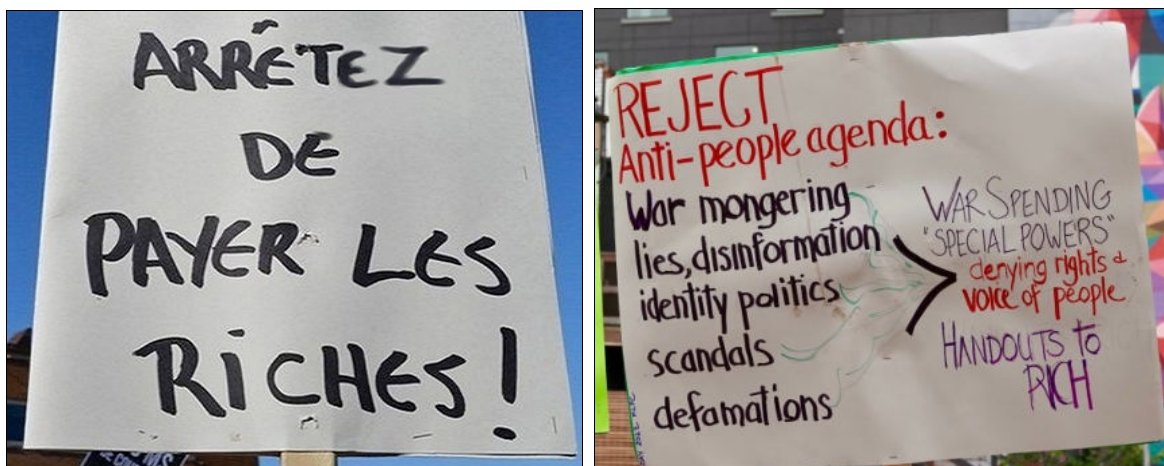 ARRÊTEZ
DE
PAYER LES
RiCHES!
REJECT
Anti-people agenda:
War mongering
lies, disinformation
identity politics
scandals
defamations
WAR SPENDING
"SPECIAL POWERS"
denying rights &
voice of people
HANDOUTS TO
RICH